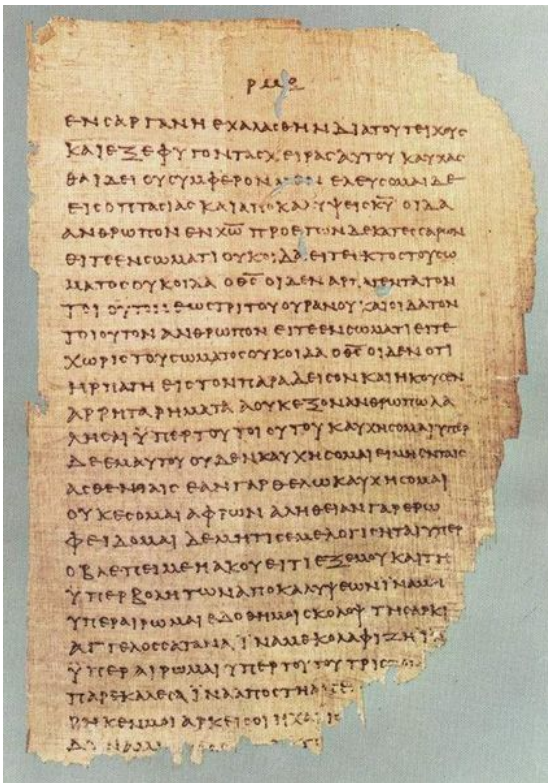 ΕΝ ΣΑΡΓΑΝΗ ΕΧΑΛΑΣΘΗΝ ΔΙΑ ΤΟΥ ΤΕΙΧΟΥΣ
ΚΑΙ ΕΞΕΦΥΓΟΝ ΤΑΣ ΧΕΙΡΑΣ ΑΥΤΟΥ ΚΑΥΧΑΣ
ΘΑΙ ΔΕΙ ΟΥ ΣΥΜΦΕΡΟΝ ΕΛΕΥΣΟΜΑΙ ΔΕ
ΕΙΣ ΟΠΤΑΣΙΑΣ ΚΑΙ ΑΠΟΚΑΛΥΨΕΙΣ Κ̅Υ̅ ΟΙΔΑ
ΑΝΘΡΩΠΟΝ ΕΝ Χ̅Ω̅ ΠΡΟ ΕΤΩΝ ΔΕΚΑΤΕΣΣΑΡΩΝ
ΕΙΤΕ ΕΝ ΣΩΜΑΤΙ ΟΥΚ ΟΙΔΑ ΕΙΤΕ ΕΚΤΟΣ ΤΟΥ ΣΩ
ΜΑΤΟΣ ΟΥΚ ΟΙΔΑ Ο Θ̅Σ̅ ΟΙΔΕΝ ΑΡΠΑΓΕΝΤΑ ΤΟΝ
ΤΟΙΟΥΤΟΝ ΕΩΣ ΤΡΙΤΟΥ ΟΥΡΑΝΟΥ ΚΑΙ ΟΙΔΑ ΤΟΝ
ΤΟΙΟΥΤΟΝ ΑΝΘΡΩΠΟΝ ΕΙΤΕ ΕΝ ΣΩΜΑΤΙ ΕΙΤΕ
ΧΩΡΙΣ ΤΟΥ ΣΩΜΑΤΟΣ ΟΥΚ ΟΙΔΑ Ο Θ̅Σ̅ ΟΙΔΕΝ ΟΤΙ
ΗΡΠΑΓΗ ΕΙΣ ΤΟΝ ΠΑΡΑΔΕΙΣΟΝ ΚΑΙ ΗΚΟΥΣΕΝ
ΑΡΡΗΤΑ ΡΗΜΑΤΑ Α ΟΥΚ ΕΞΟΝ ΑΝΘΡΩΠΩ ΛΑ
ΛΗΣΑΙ ΫΠΕΡ ΤΟΥ ΤΟΙΟΥΤΟΥ ΚΑΥΧΗΣΟΜΑΙ ΥΠΕΡ
ΔΕ ΕΜΑΥΤΟΥ ΟΥΔΕΝ ΚΑΥΧΗΣΟΜΑΙ ΕΙ ΜΗ ΕΝ ΤΑΙΣ
ΑΣΘΕΝΕΙΑΙΣ ΕΑΝ ΓΑΡ ΘΕΛΩ ΚΑΥΧΗΣΟΜΑΙ
ΟΥΚ ΕΣΟΜΑΙ ΑΦΡΩΝ ΑΛΗΘΕΙΑΝ ΓΑΡ ΕΡΩ
ΦΕΙΔΟΜΑΙ ΔΕ ΜΗ ΤΙΣ ΕΜΕ ΛΟΓΙΣΗΤΑΙ ΥΠΕΡ
Ο ΒΛΕΠΕΙ ΜΕ Η ΑΚΟΥΕΙ ΤΙ ΕΞ ΕΜΟΥ ΚΑΙ ΤΗ
ΫΠΕΡΒΟΛΗ ΤΩΝ ΑΠΟΚΑΛΥΨΕΩΝ ΙΝΑ ΜΗ
ΥΠΕΡΑΙΡΩΜΑΙ ΕΔΟΘΗ ΜΟΙ ΣΚΟΛΟΨ ΤΗ ΣΑΡΚΙ
ΑΓΓΕΛΟΣ ΣΑΤΑΝΑ ΪΝΑ ΜΕ ΚΟΛΑΦΙΖΗ
ΫΠΕΡΑΙΡΩΜΑΙ ΥΠΕΡ ΤΟΥΤΟΥ ΤΡΙΣ
ΠΑΡΕΚΑΛΕΣΑ ΪΝΑ ΑΠΟΣΤΗ
ΡΗΚΕΝ ΜΟΙ ΑΡΚΕΙ ΣΟΙ Η ΧΑΡΙΣ
ΔΥΝΑΜΙΣ